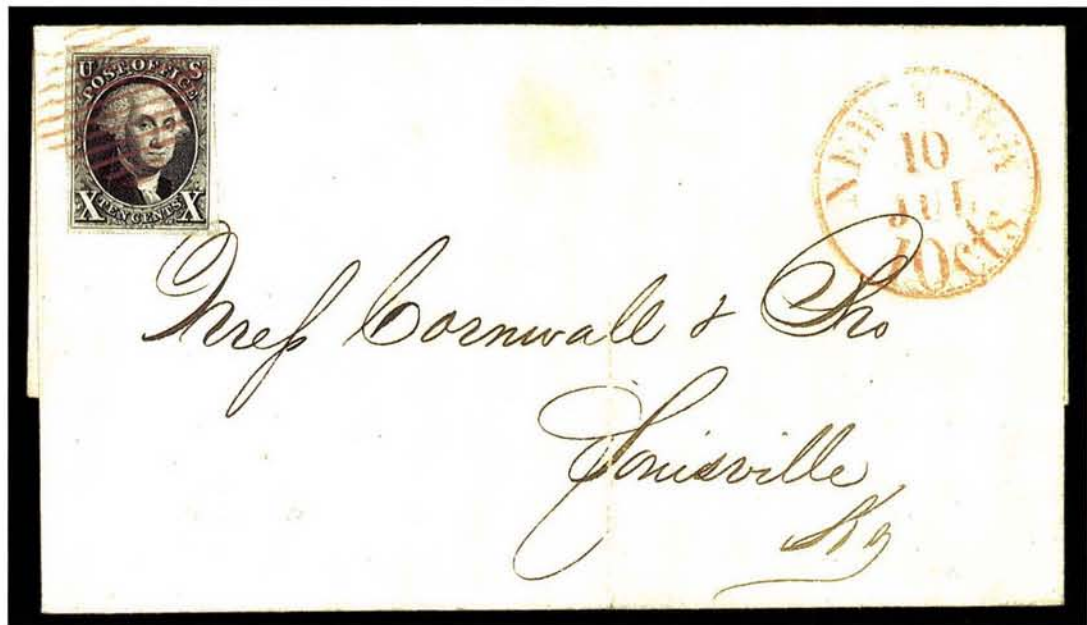 U S
POST OFFICE
X TEN CENTS X
NEW-YORK
10
JUL
10cts
Mess Cornwall & Bro
Louisville
Ky